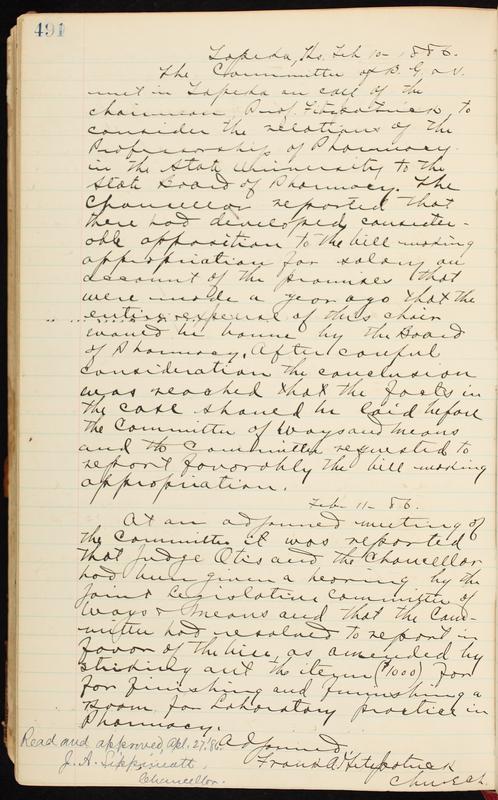 491
Topeka, Ks. Feb 10 - 1886.
The Committee of B. G. & V.
met in Topeka on call of the
chairman, Prof. Fitzpatrick, to
consider the relations of the
Professorship of Pharmacy
in the State University to the
State Board of Pharmacy. The
Chancellor reported that
there had developed consider-
able opposition to the bill making
appropriation for salary on
account of the promises that
were made a year ago that the
entire expense of this chair
would be borne by the Board
of Pharmacy. After careful
consideration the conclusion
was reached that the facts in
the case should be laid before
the Committee of Ways and Means
and the Committee requested to
report favorably the bill making
appropriation.
Feb. 11 - 86.
At an adjourned meeting of
the Committee it was reported
that Judge Otis and the Chancellor
had been given a hearing by the
Joint Legislative Committee of
Ways & Means and that the Com-
mittee had resolved to report in
favor of the bill as amended by
striking out the item ($1000) for
for finishing and furnishing a
room for Laboratory practice in
Pharmacy.
Adjourned,
Frank A. Fitzpatrick
Read and approved, Apl. 27, '86.
J. A. Lippincott,
Chancellor.